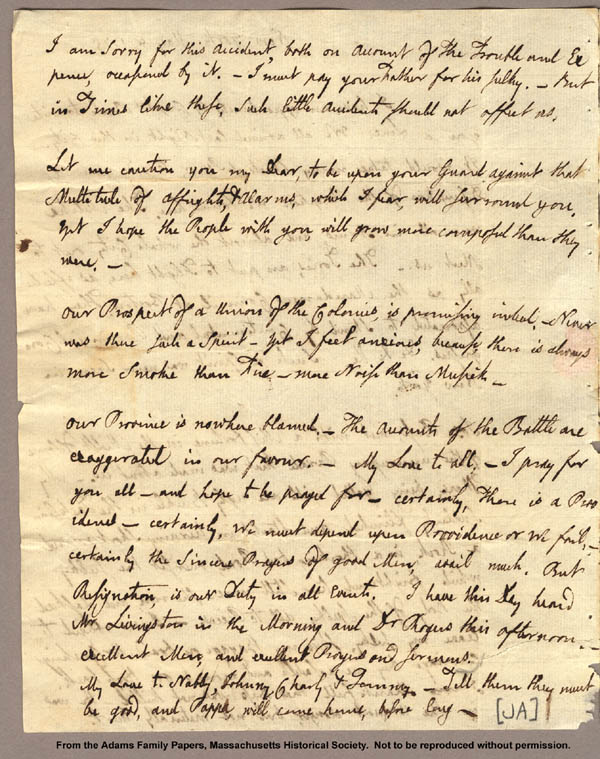 I am sorry for this Accident, both on Account of the Trouble and Ex
pence, occasiond by it. – I must pay your Father for his sulky. – But
in Times like these, such little Accidents should not affect us.
Let me caution you my Dear, to be upon your Guard against that
Multitude of Affrights, & Alarms, which I fear, will surround you.
Yet I hope the People with you, will grow more composed than they
were. –
Our Prospect of a Union of the Colonies, is promising indeed. – Never
was there such a Spirit – Yet I feel anxious, because, there is always
more Smoke than Fire – more Noise than Musick –
Our Province is nowhere blamed. – The Accounts of the Battle are
exaggerated in our favour. – My Love to all. – I pray for
you all – and hope to be prayd for – certainly, There is a Prov
idence – certainly, we must depend upon Providence or we fail, –
certainly the sincere Prayers of good Men, avail much. But
Resignation is our Duty in all Events. I have this Day heard
Mr. Livingston in the Morning and Dr Rogers this afternoon. –
excellent Men, and excellent Prayers and sermons.
My Love to Nabby, Johnny, Charly & Tommy – Tell them they must
be good, and Pappa will come home, before long –
[JA]
From the Adams Family Papers, Massachusetts Historical Society. Not to be reproduced without permission.